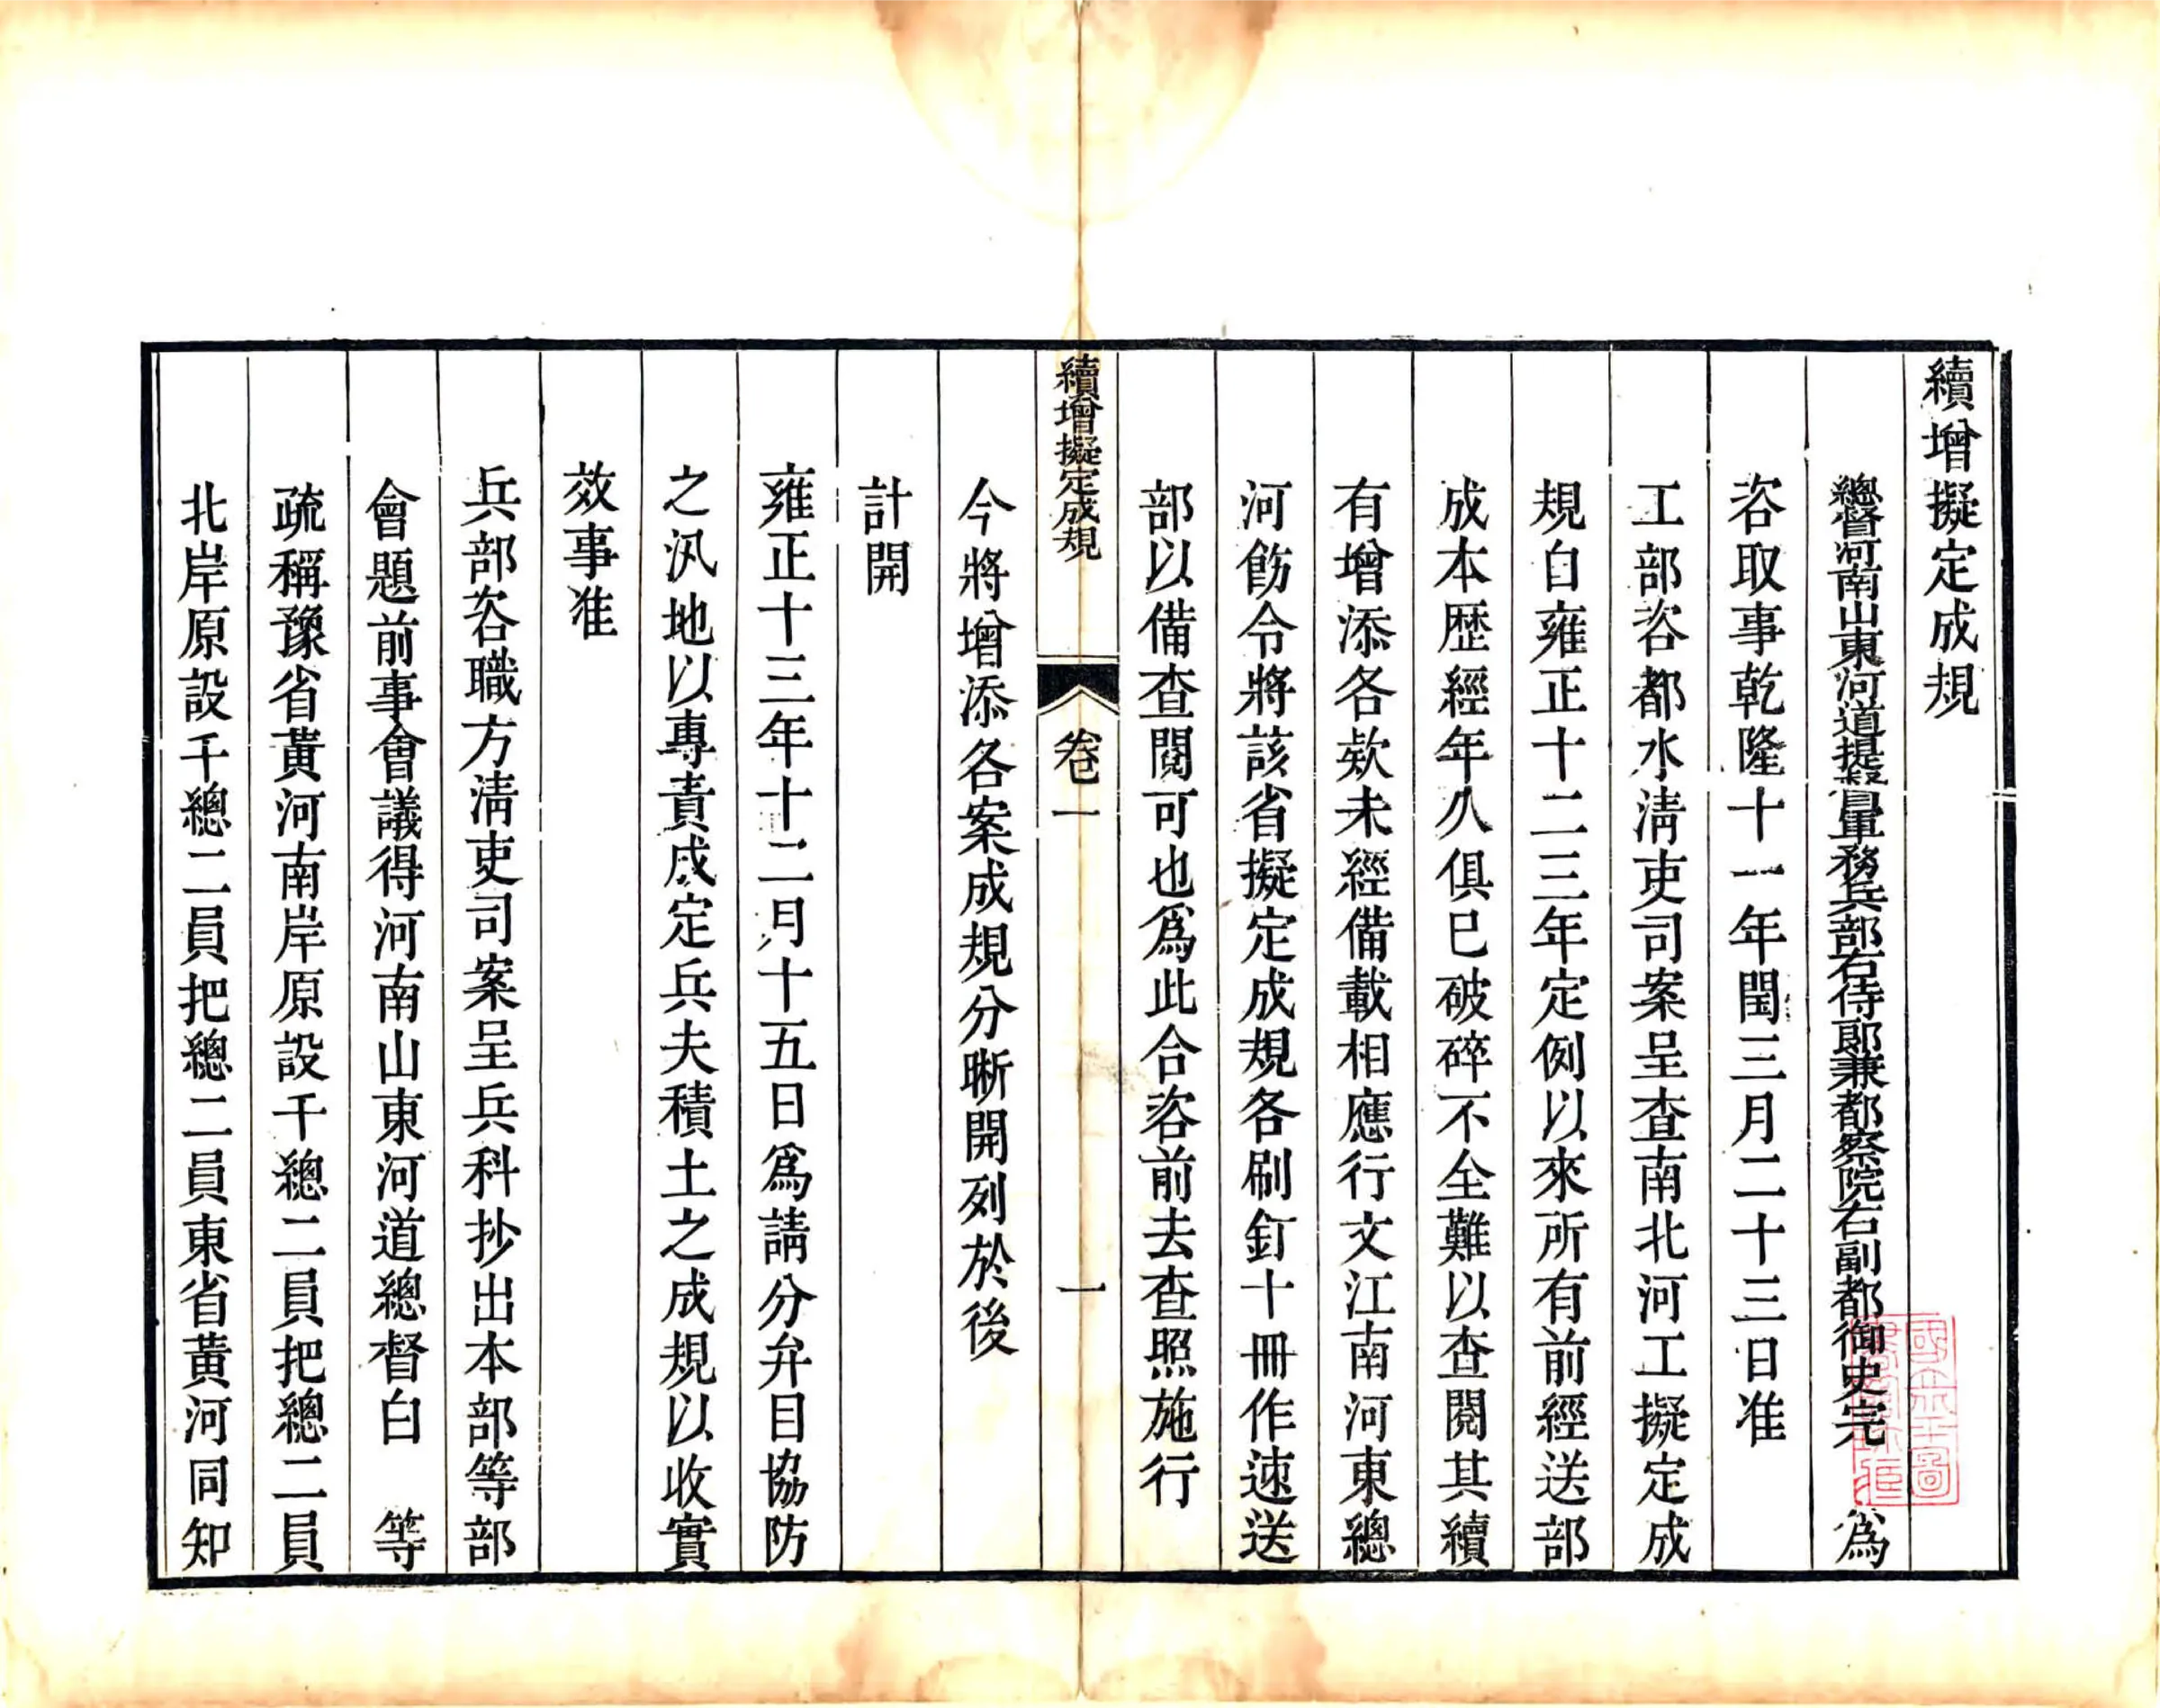 續增擬定成規
總督河南山東河道提督軍務兵部右侍郎兼都察院右副都御史完 為
咨取事乾隆十一年閏三月二十三日准
工部咨都水清吏司案呈查南北河工擬定成
規自雍正十二三年定例以來所有前經送部
成本歷經年久俱已破碎不全難以查閱其續
有增添各欵未經備載相應行文江南河東總
河飭令將該省擬定成規各刷釘十冊作速送
部以備查閱可也為此合咨前去查照施行
續增擬定成規 卷一 一
今將增添各案成規分晰開列於後
計開
雍正十三年十二月十五日為請分弁目協防
之汛地以專責成定兵夫積土之成規以收實
效事准
兵部咨職方清吏司案呈兵科抄出本部等部
會題前事會議得河南山東河道總督白 等
疏稱豫省黃河南岸原設千總二員把總二員
北岸原設千總二員把總二員東省黃河同知